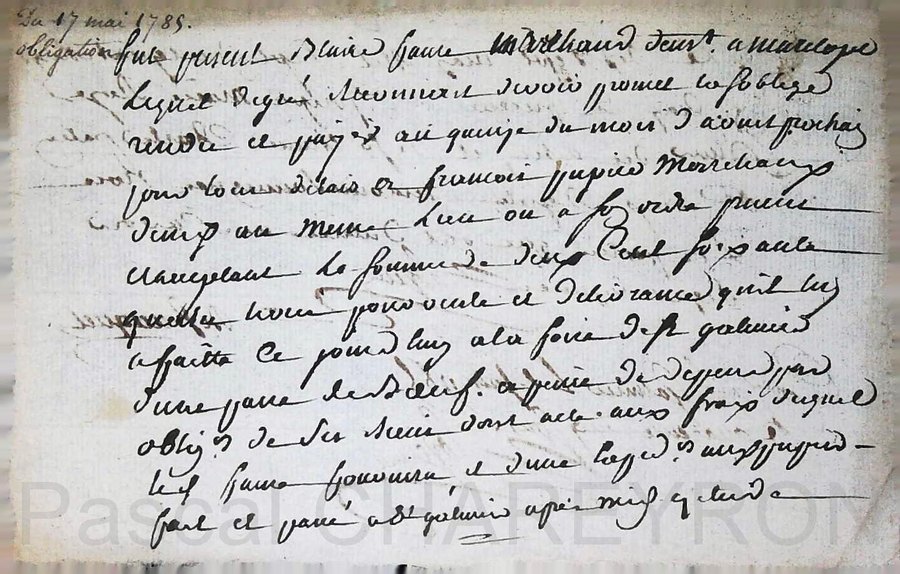 Du 17 mai 1785.
obligation
fut present Blaise faure marchand demt. a
Lequel degré reconnait devoir promet et soblige
rendre et payer au quinze du mois d'aoust prochain
pour tout delais a françois papico Marchand
demt au meme Lieu ou a son ordre present
acceptant La somme de deux Cent soixante
quatre livres pour vente et delivrance qu'il luy
a faitte Ce jourd'huy a la foire de st galmier
d'une paire de Bœuf. a peine de depens par
oblig.on de ses biens dont acte aux frais duquel
led. faure fournira et d'une exped.on aud. papico
fait et passé a st galmier apres midy
Pascal CHAREYRON